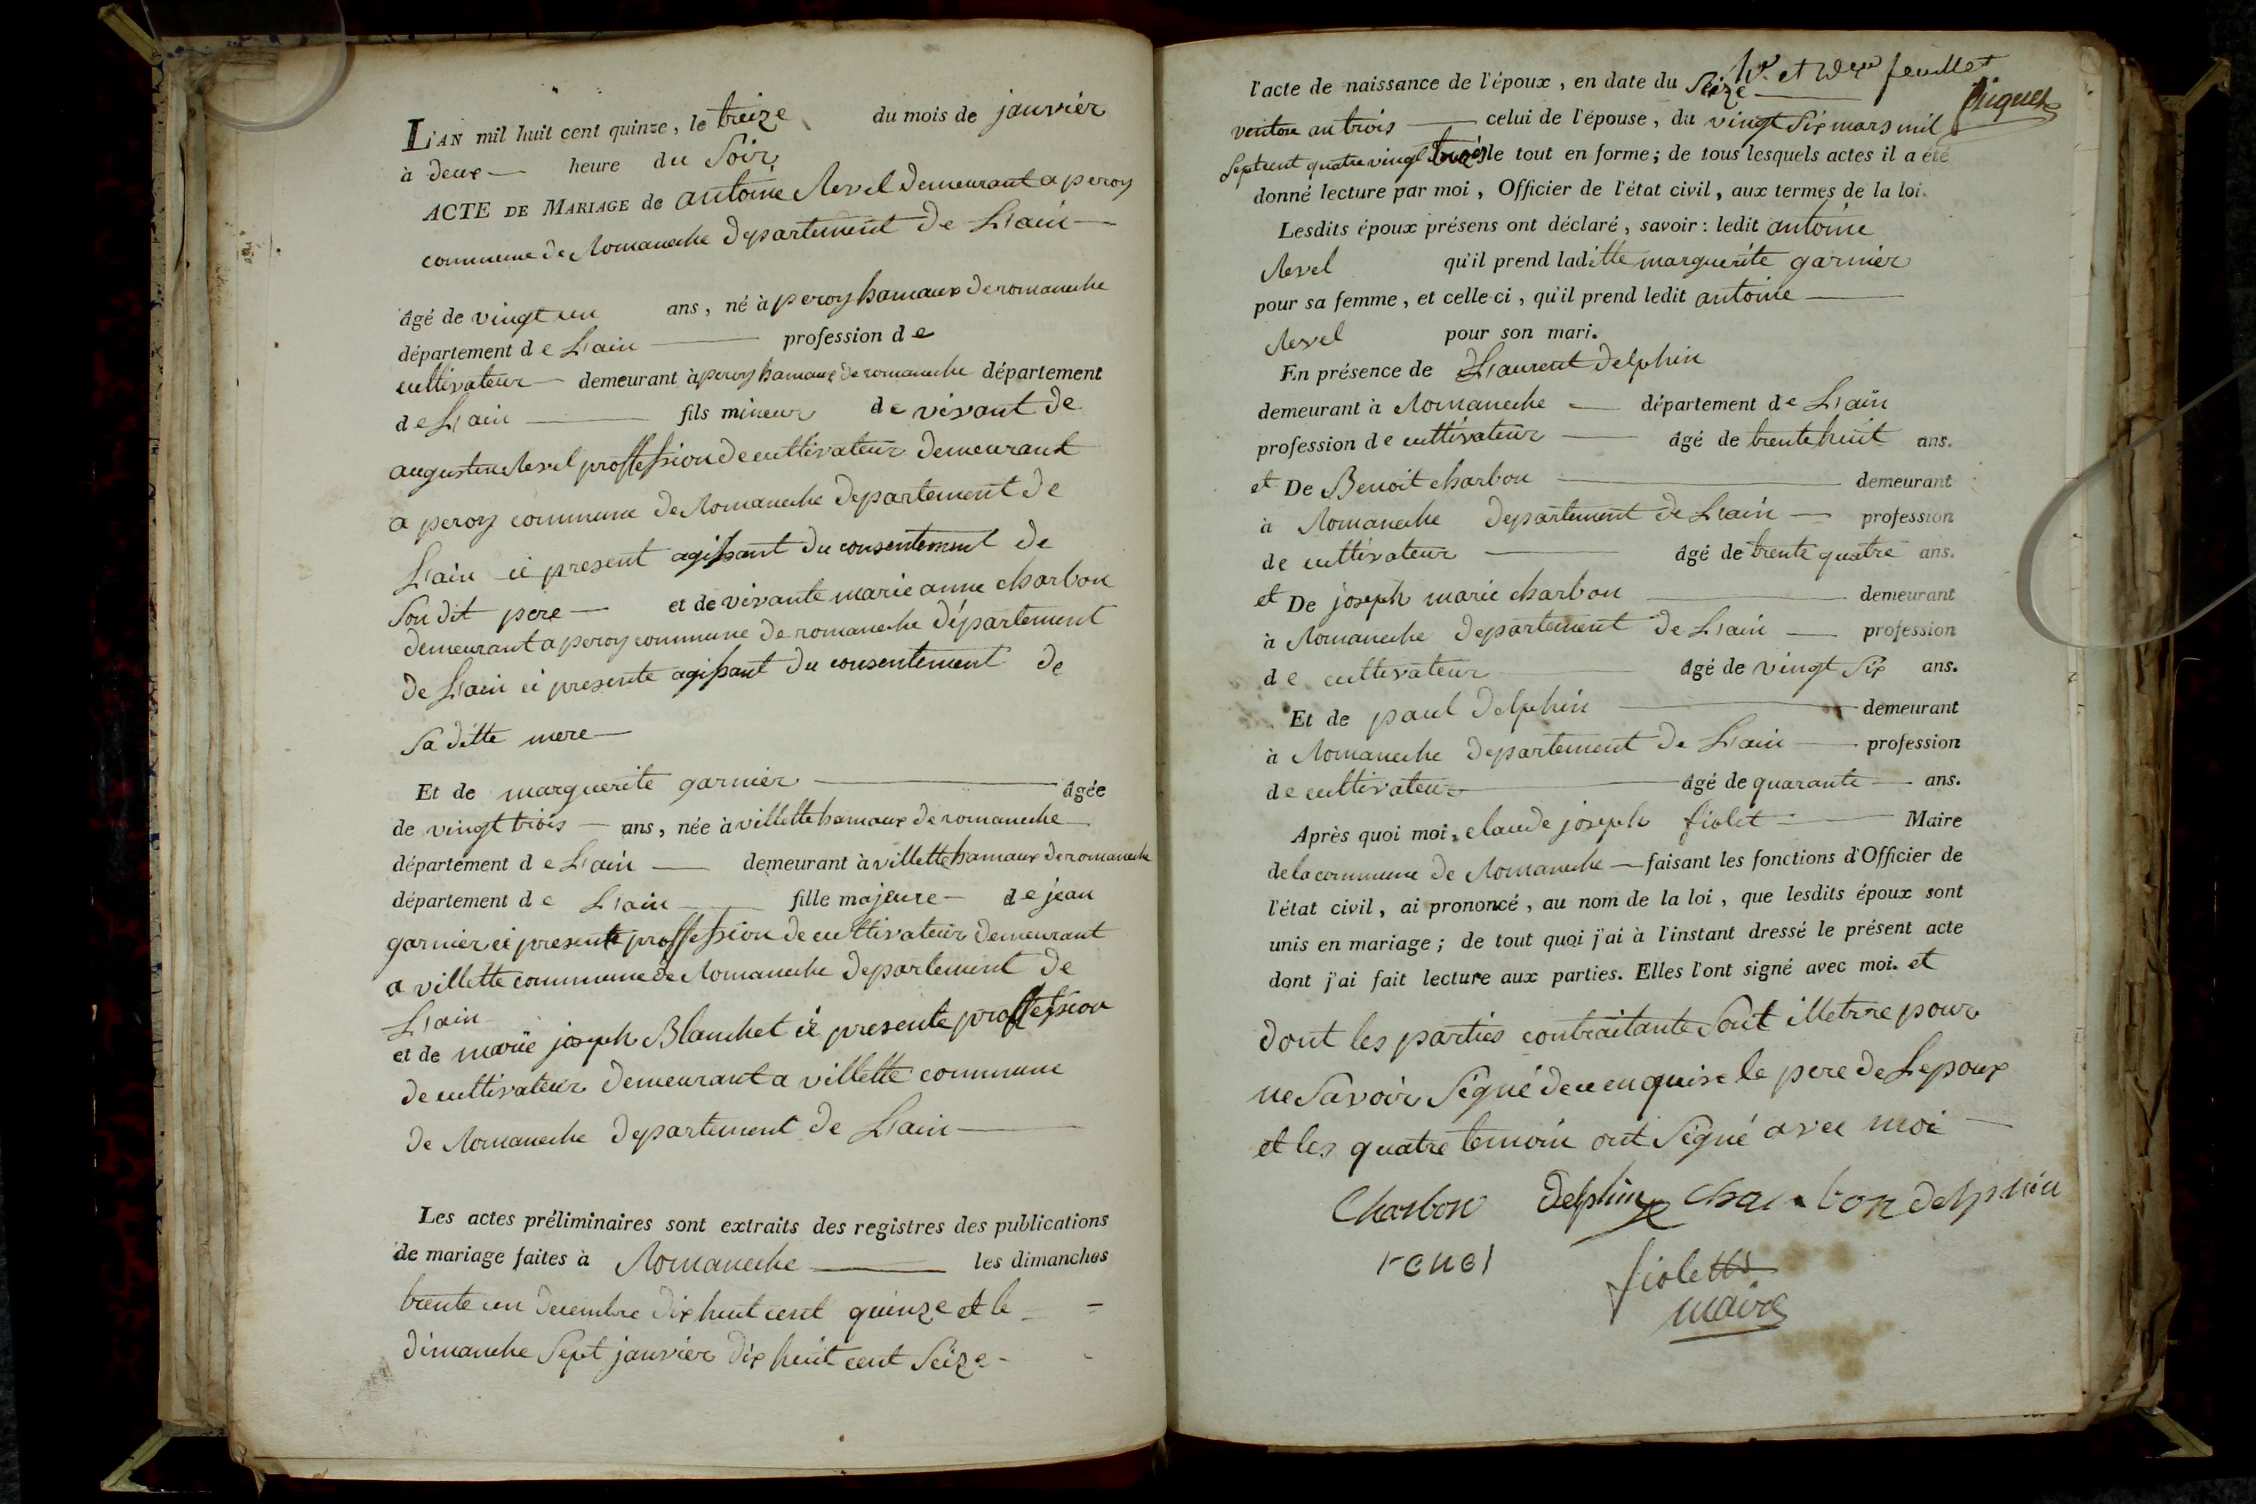 L'AN mil huit cent quinze, le treize du mois de janvier
à deux — heure du Soir
ACTE DE MARIAGE de antoine Revel demeurant a peroy
commune de Romaneche departement de L'ain —
âgé de vingt un ans, né à peroy hamaux de romaneche
département de L'ain — profession de
cultivateur — demeurant à peroy hamaux de romaneche département
de L'ain — fils mineur de vivant de
augustin Revel proffession de cultivateur demeurant
a peroy commune de Romaneche departement de
L'ain ci present agissant du consentement de
Son dit pere — et de vivante marie anne charbon
demeurant a peroy commune de romaneche département
de L'ain ci presente agissant du consentement de
Sa ditte mere —
Et de marguerite garnier — âgée
de vingt trois — ans, née à villette hamaux de romaneche
département de L'ain — demeurant à villette hamaux de romaneche
département de L'ain — fille majeure — de jean
garnier ci presente proffession de cultivateur demeurant
a villette commune de Romaneche departement de
L'ain
et de marie joseph Blanchet ci presente proffession
de cultivateur demeurant a villette commune
de Romaneche departement de L'ain —
Les actes préliminaires sont extraits des registres des publications
de mariage faites à Romaneche — les dimanches
trente un decembre dix huit cent quinze et le —
dimanche Sept janvier dix huit cent Seize —
et feuillet
l'acte de naissance de l'époux, en date du Seize —
ventose an trois — celui de l'épouse, du vingt Six mars mil
Septcent quatre vingt treize le tout en forme; de tous lesquels actes il a été
donné lecture par moi, Officier de l'état civil, aux termes de la loi.
Lesdits époux présens ont déclaré, savoir: ledit antoine
Revel qu'il prend laditte marguerite garnier
pour sa femme, et celle ci, qu'il prend ledit antoine —
Revel pour son mari.
En présence de Laurent delphin
demeurant à Romaneche — département de L'ain
profession de cultivateur — âgé de trente huit ans.
et De Benoit charbon — demeurant
à Romaneche departement de L'ain — profession
de cultivateur — âgé de trente quatre ans.
et De joseph marie charbon — demeurant
à Romaneche departement de L'ain — profession
de cultivateur — âgé de vingt Six ans.
Et de paul delphin — demeurant
à Romaneche departement de L'ain — profession
de cultivateur — âgé de quarante — ans.
Après quoi moi, claude joseph fiolet — Maire
de la commune de Romaneche — faisant les fonctions d'Officier de
l'état civil, ai prononcé, au nom de la loi, que lesdits époux sont
unis en mariage; de tout quoi j'ai à l'instant dressé le présent acte
dont j'ai fait lecture aux parties. Elles l'ont signé avec moi. et
dont les parties contraitante Sont illetrre pour
ne Savoir Signé de ce enquise le pere de Lepoux
et les quatre temoin ont Signé avec moi —
Charbon delphin charbon delphin
revel
fiolet
maire